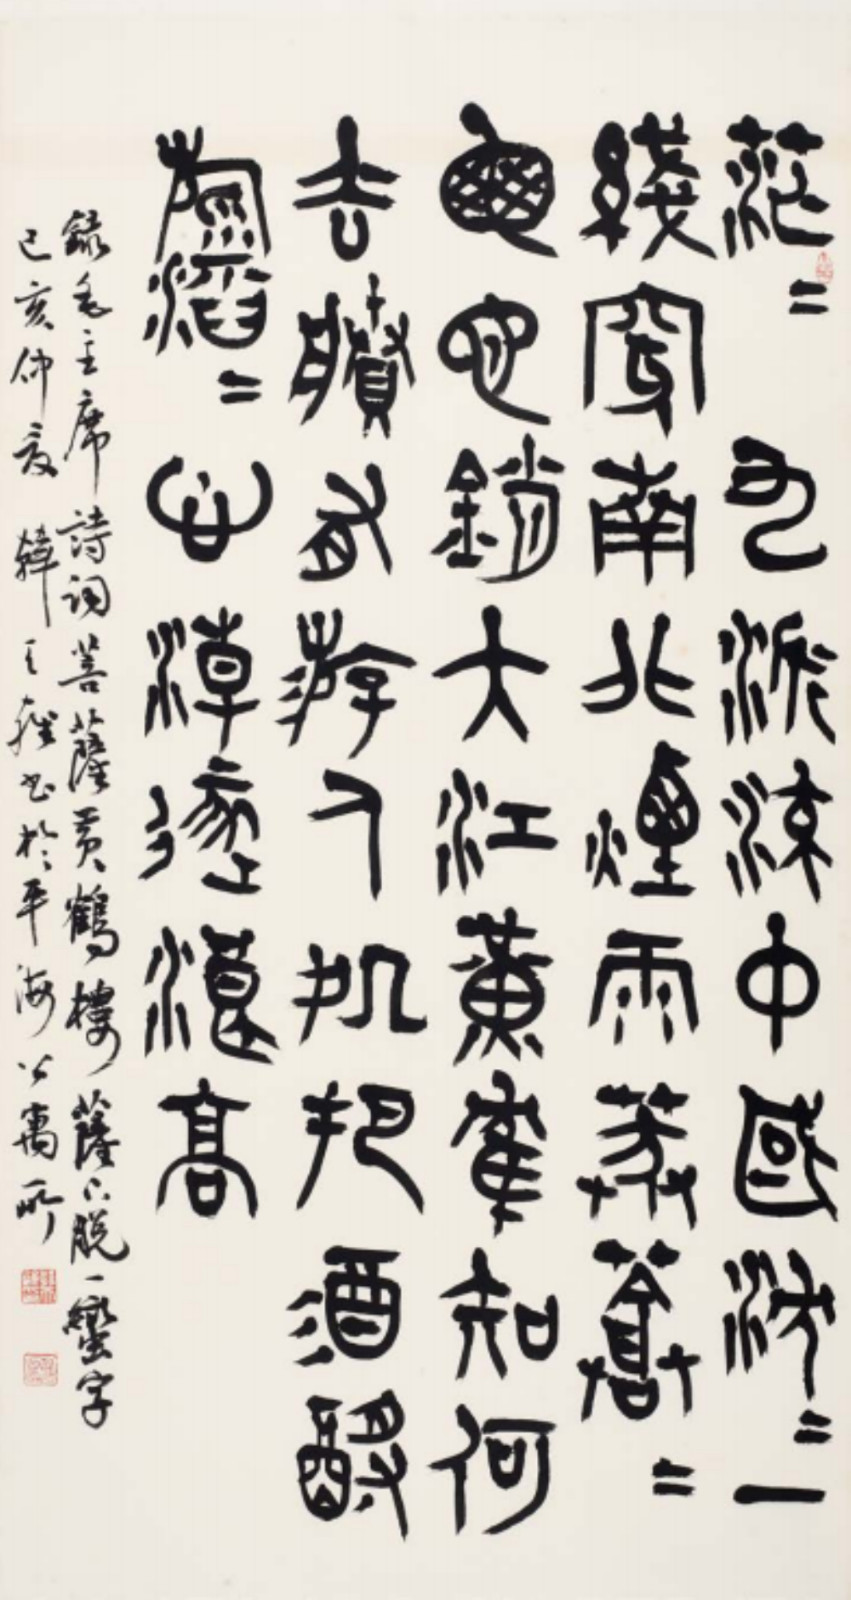 茫〻九派流中國沈〻一
綫穿南北煙雨莽蒼〻
龜它鎖大江黃隺知何
去賸有游人処把酒酹
滔〻心潮逐浪高
錄毛主席詩詞菩薩黃鶴樓薩下脫一蠻字
己亥仲夏 韓天雍書於平海公寓所